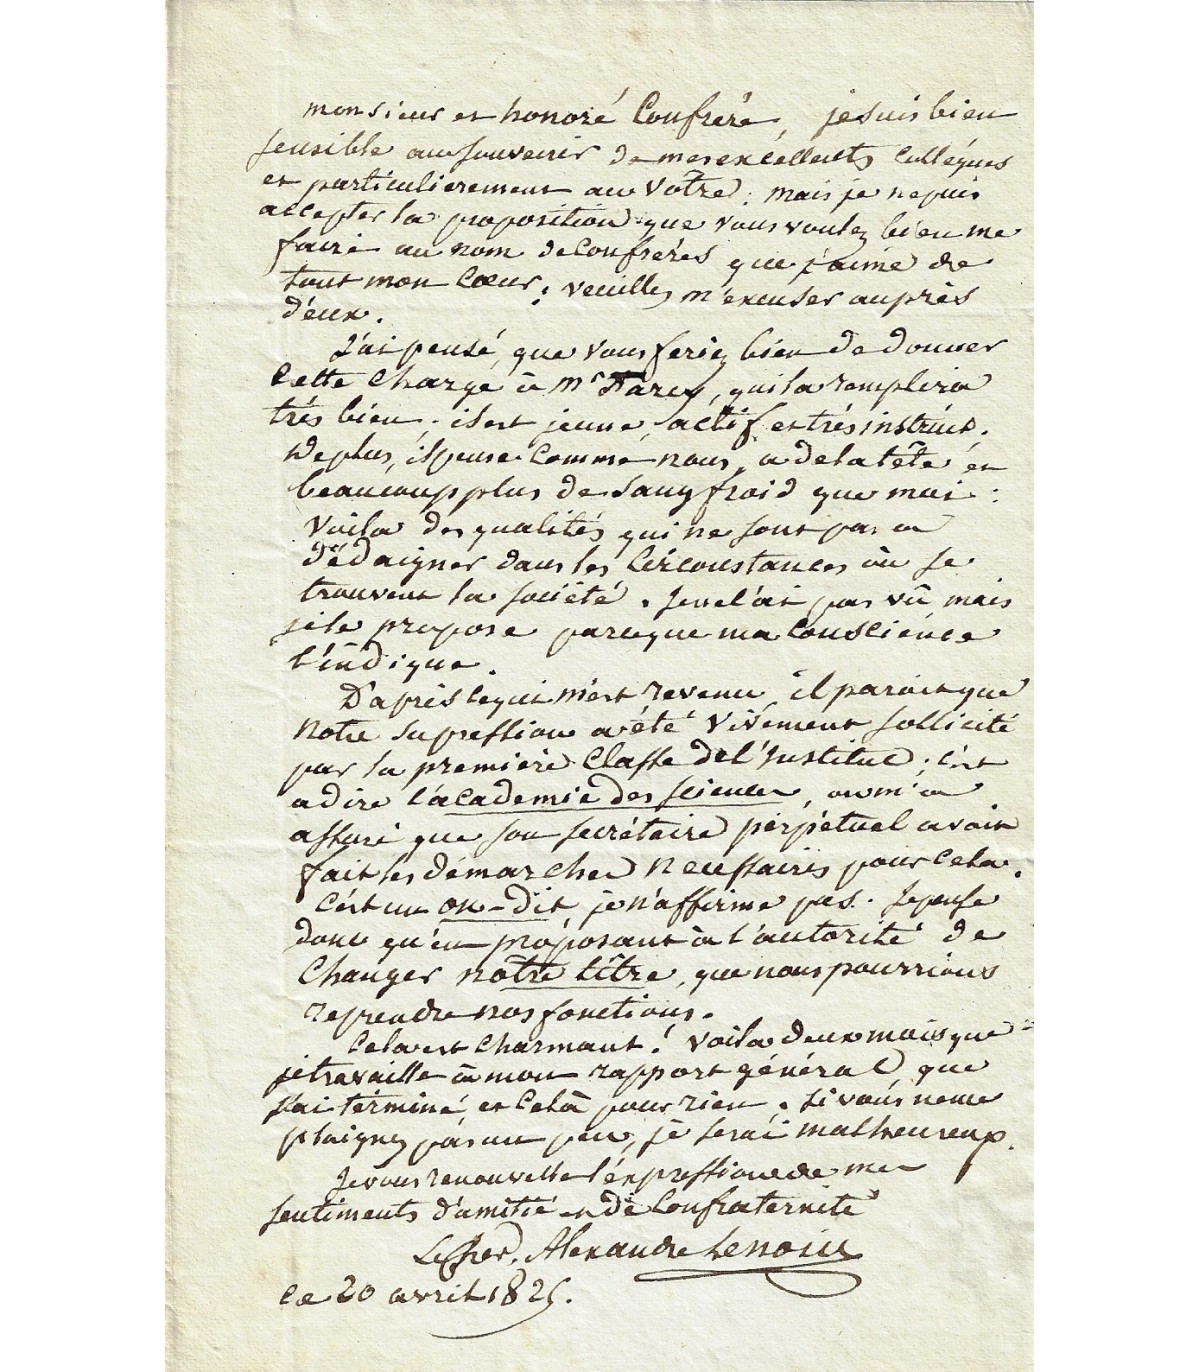 monsieur et honoré Confrère, je suis bien
sensible au souvenir de mes excellents collégues
et particulierement au Vôtre: mais je ne puis
accepter la proposition que vous voulez bien me
faire au nom de Confrères que j'aime de
tout mon Cœur; veuillez m'excuser auprès
d'eux.
J'ai pensé, que vous feriez bien de donner
Cette Charge à Mr Farcy, qui la remplira
très bien; il est jeune, actif et très instruit.
De plus, il pense Comme nous, a de la tête et
beaucoup plus de Sang froid que moi:
Voila des qualités qui ne sont pas a
dédaigner dans les Circonstances où se
trouvent la société. Je ne l'ai pas vû, mais
je le propose parceque ma Conscience
l'indique.
D'après ce qui m'est revenu, il parait que
Notre Supression a été Vivement sollicité
par la première Classe de l'Institut; c'est
a dire l'académie des sciences, on m'a
assuré que son secrétaire perpétuel avait
fait les démarches Necessaires pour Cela.
C'est un on-dit, je n'affirme pas. Je pense
donc qu'en proposant à l'autorité de
Changer notre titre, que nous pourrions
reprendre nos fonctions.
Cela est Charmant! Voila deux mois que
je travaille à mon rapport général, que
j'ai terminé, et Celà pour rien. Si vous ne me
plaignez pas un peu, je serai malheureux.
Je vous renouvelle l'expression de mes
sentiments d'amitié et de Confraternité
Le Cher. Alexandre Lenoir
Ce 20 avril 1825.